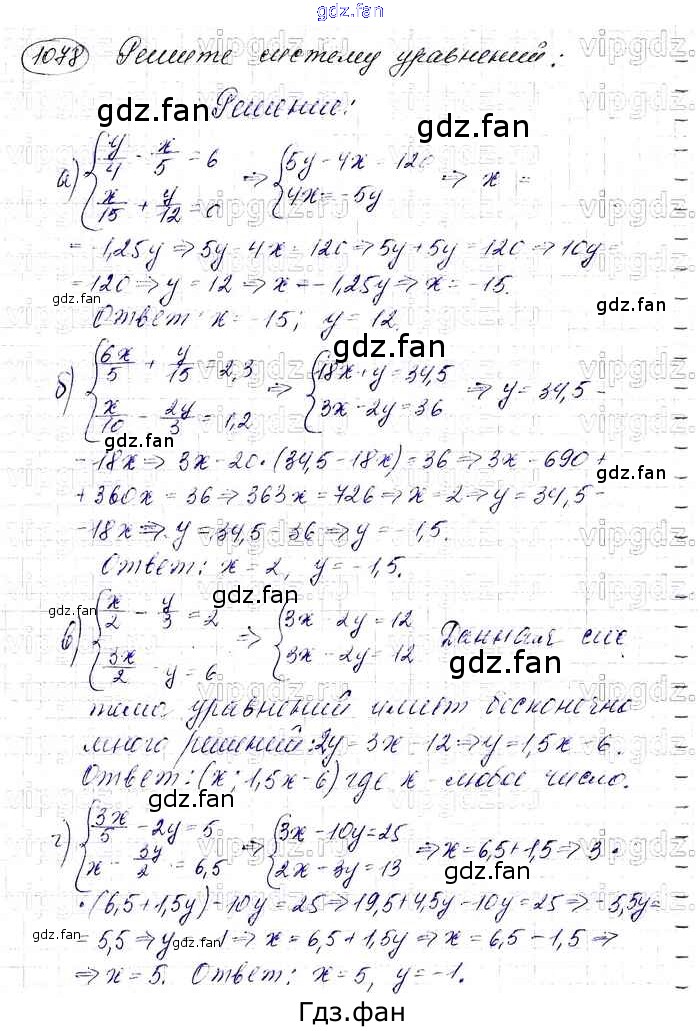 gdz.fan
1078 Решите систему уравнений:
Решение:
а) { y/4 - x/5 = 6 ; x/15 + y/12 = 0 ⇒ { 5y - 4x = 120 ; 4x = -5y ⇒ x =
= -1,25y ⇒ 5y - 4x = 120 ⇒ 5y + 5y = 120 ⇒ 10y =
= 120 ⇒ y = 12 ⇒ x = -1,25y ⇒ x = -15.
Ответ: x = -15; y = 12.
б) { 6x/5 + y/15 = 2,3 ; x/10 - 2y/3 = 1,2 ⇒ { 18x + y = 34,5 ; 3x - 2y = 36 ⇒ y = 34,5 -
- 18x ⇒ 3x - 20·(34,5 - 18x) = 36 ⇒ 3x - 690 +
+ 360x = 36 ⇒ 363x = 726 ⇒ x = 2 ⇒ y = 34,5 -
- 18x ⇒ y = 34,5 - 36 ⇒ y = -1,5.
Ответ: x = 2, y = -1,5.
в) { x/2 - y/3 = 2 ; 3x/2 - y = 6 ⇒ { 3x - 2y = 12 ; 3x - 2y = 12 Данная сис
тема уравнений имеет бесконечно
много решений: 2y = 3x - 12 ⇒ y = 1,5x - 6.
Ответ: (x; 1,5x - 6) где x - любое число.
г) { 3x/5 - 2y = 5 ; x - 3y/2 = 6,5 ⇒ { 3x - 10y = 25 ; 2x - 3y = 13 ⇒ x = 6,5 + 1,5 ⇒ 3 ·
· (6,5 + 1,5y) - 10y = 25 ⇒ 19,5 + 4,5y - 10y = 25 ⇒ -5,5y =
= 5,5 ⇒ y = -1 ⇒ x = 6,5 + 1,5y ⇒ x = 6,5 - 1,5 ⇒
⇒ x = 5. Ответ: x = 5, y = -1.
Гдз.фан